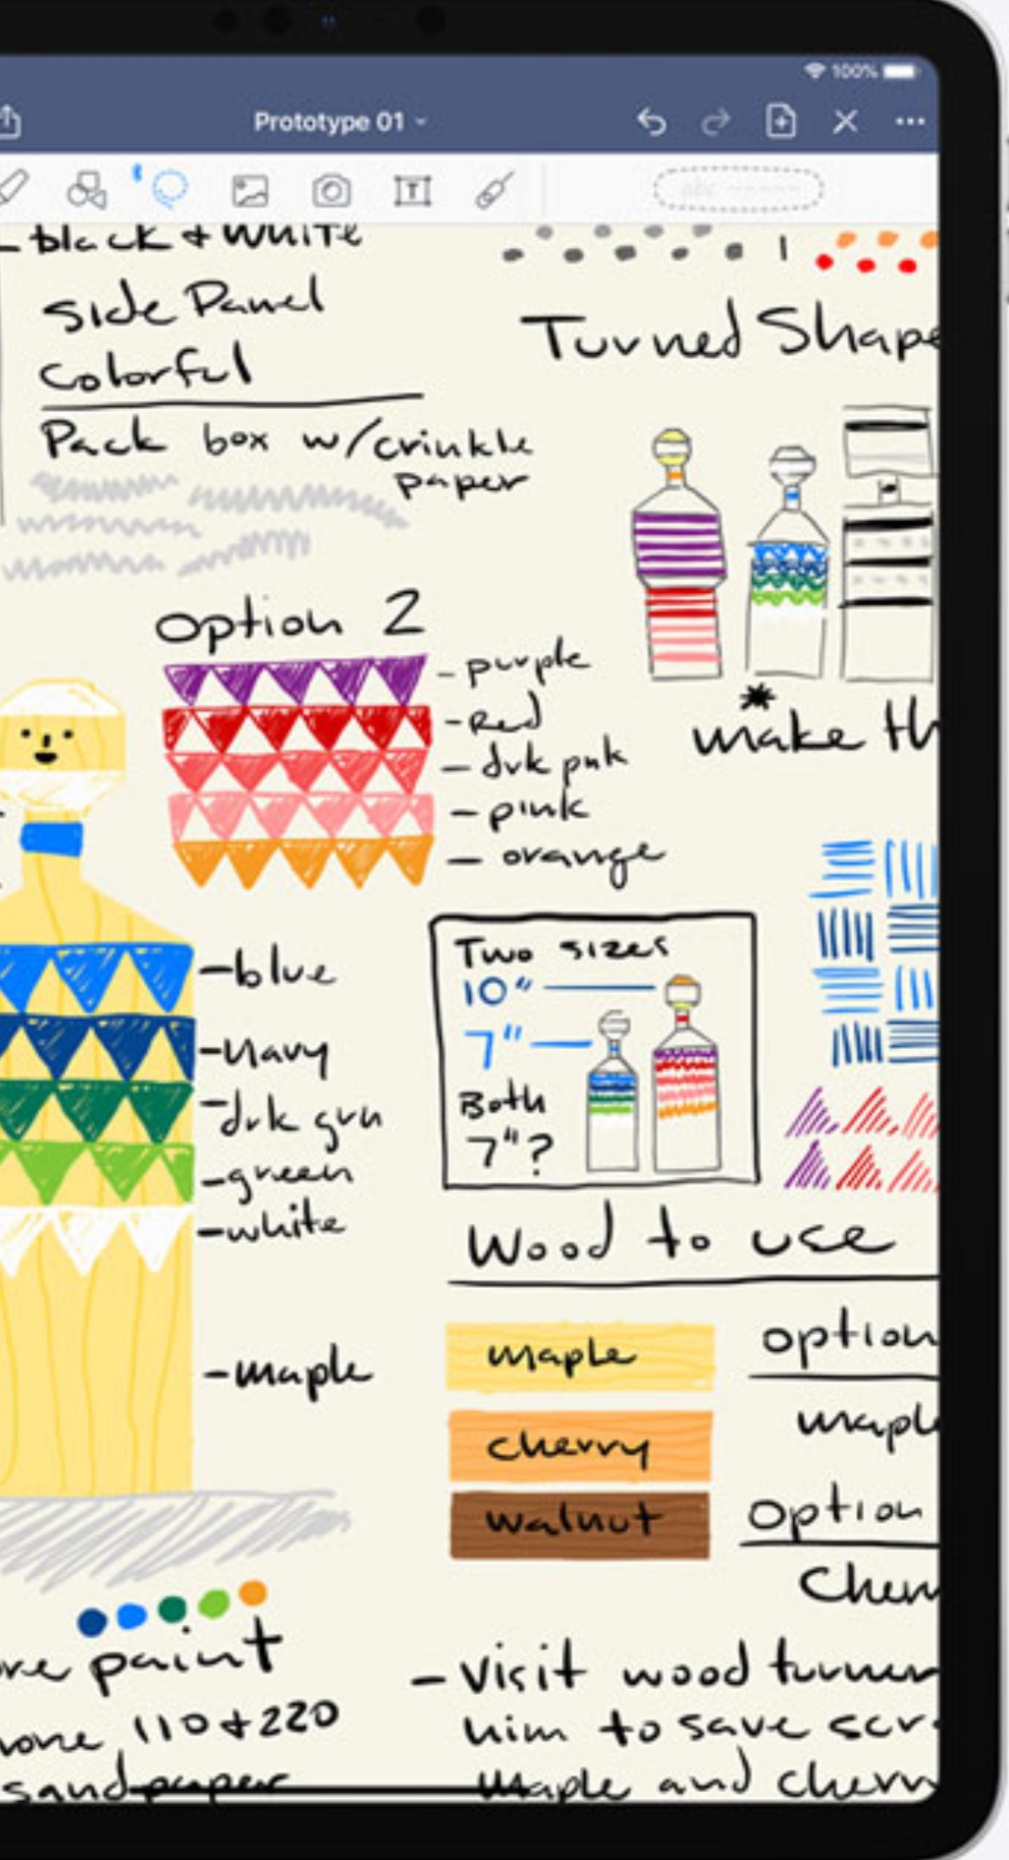 100%
Prototype 01
T
- black & white
Side Panel
Colorful
Pack box w/crinkle
paper
Turned Shape
Option 2
- purple
- Red
- drk pnk
- pink
- orange
* make th
- blue
- Navy
- drk grn
- green
- white
- maple
Two sizes
10"
7"
Both
7"?
Wood to use
maple
cherry
walnut
option
mapl
option
Cher
paint
110 & 220
sandpaper
- Visit wood turner
him to save scr
Maple and cherry